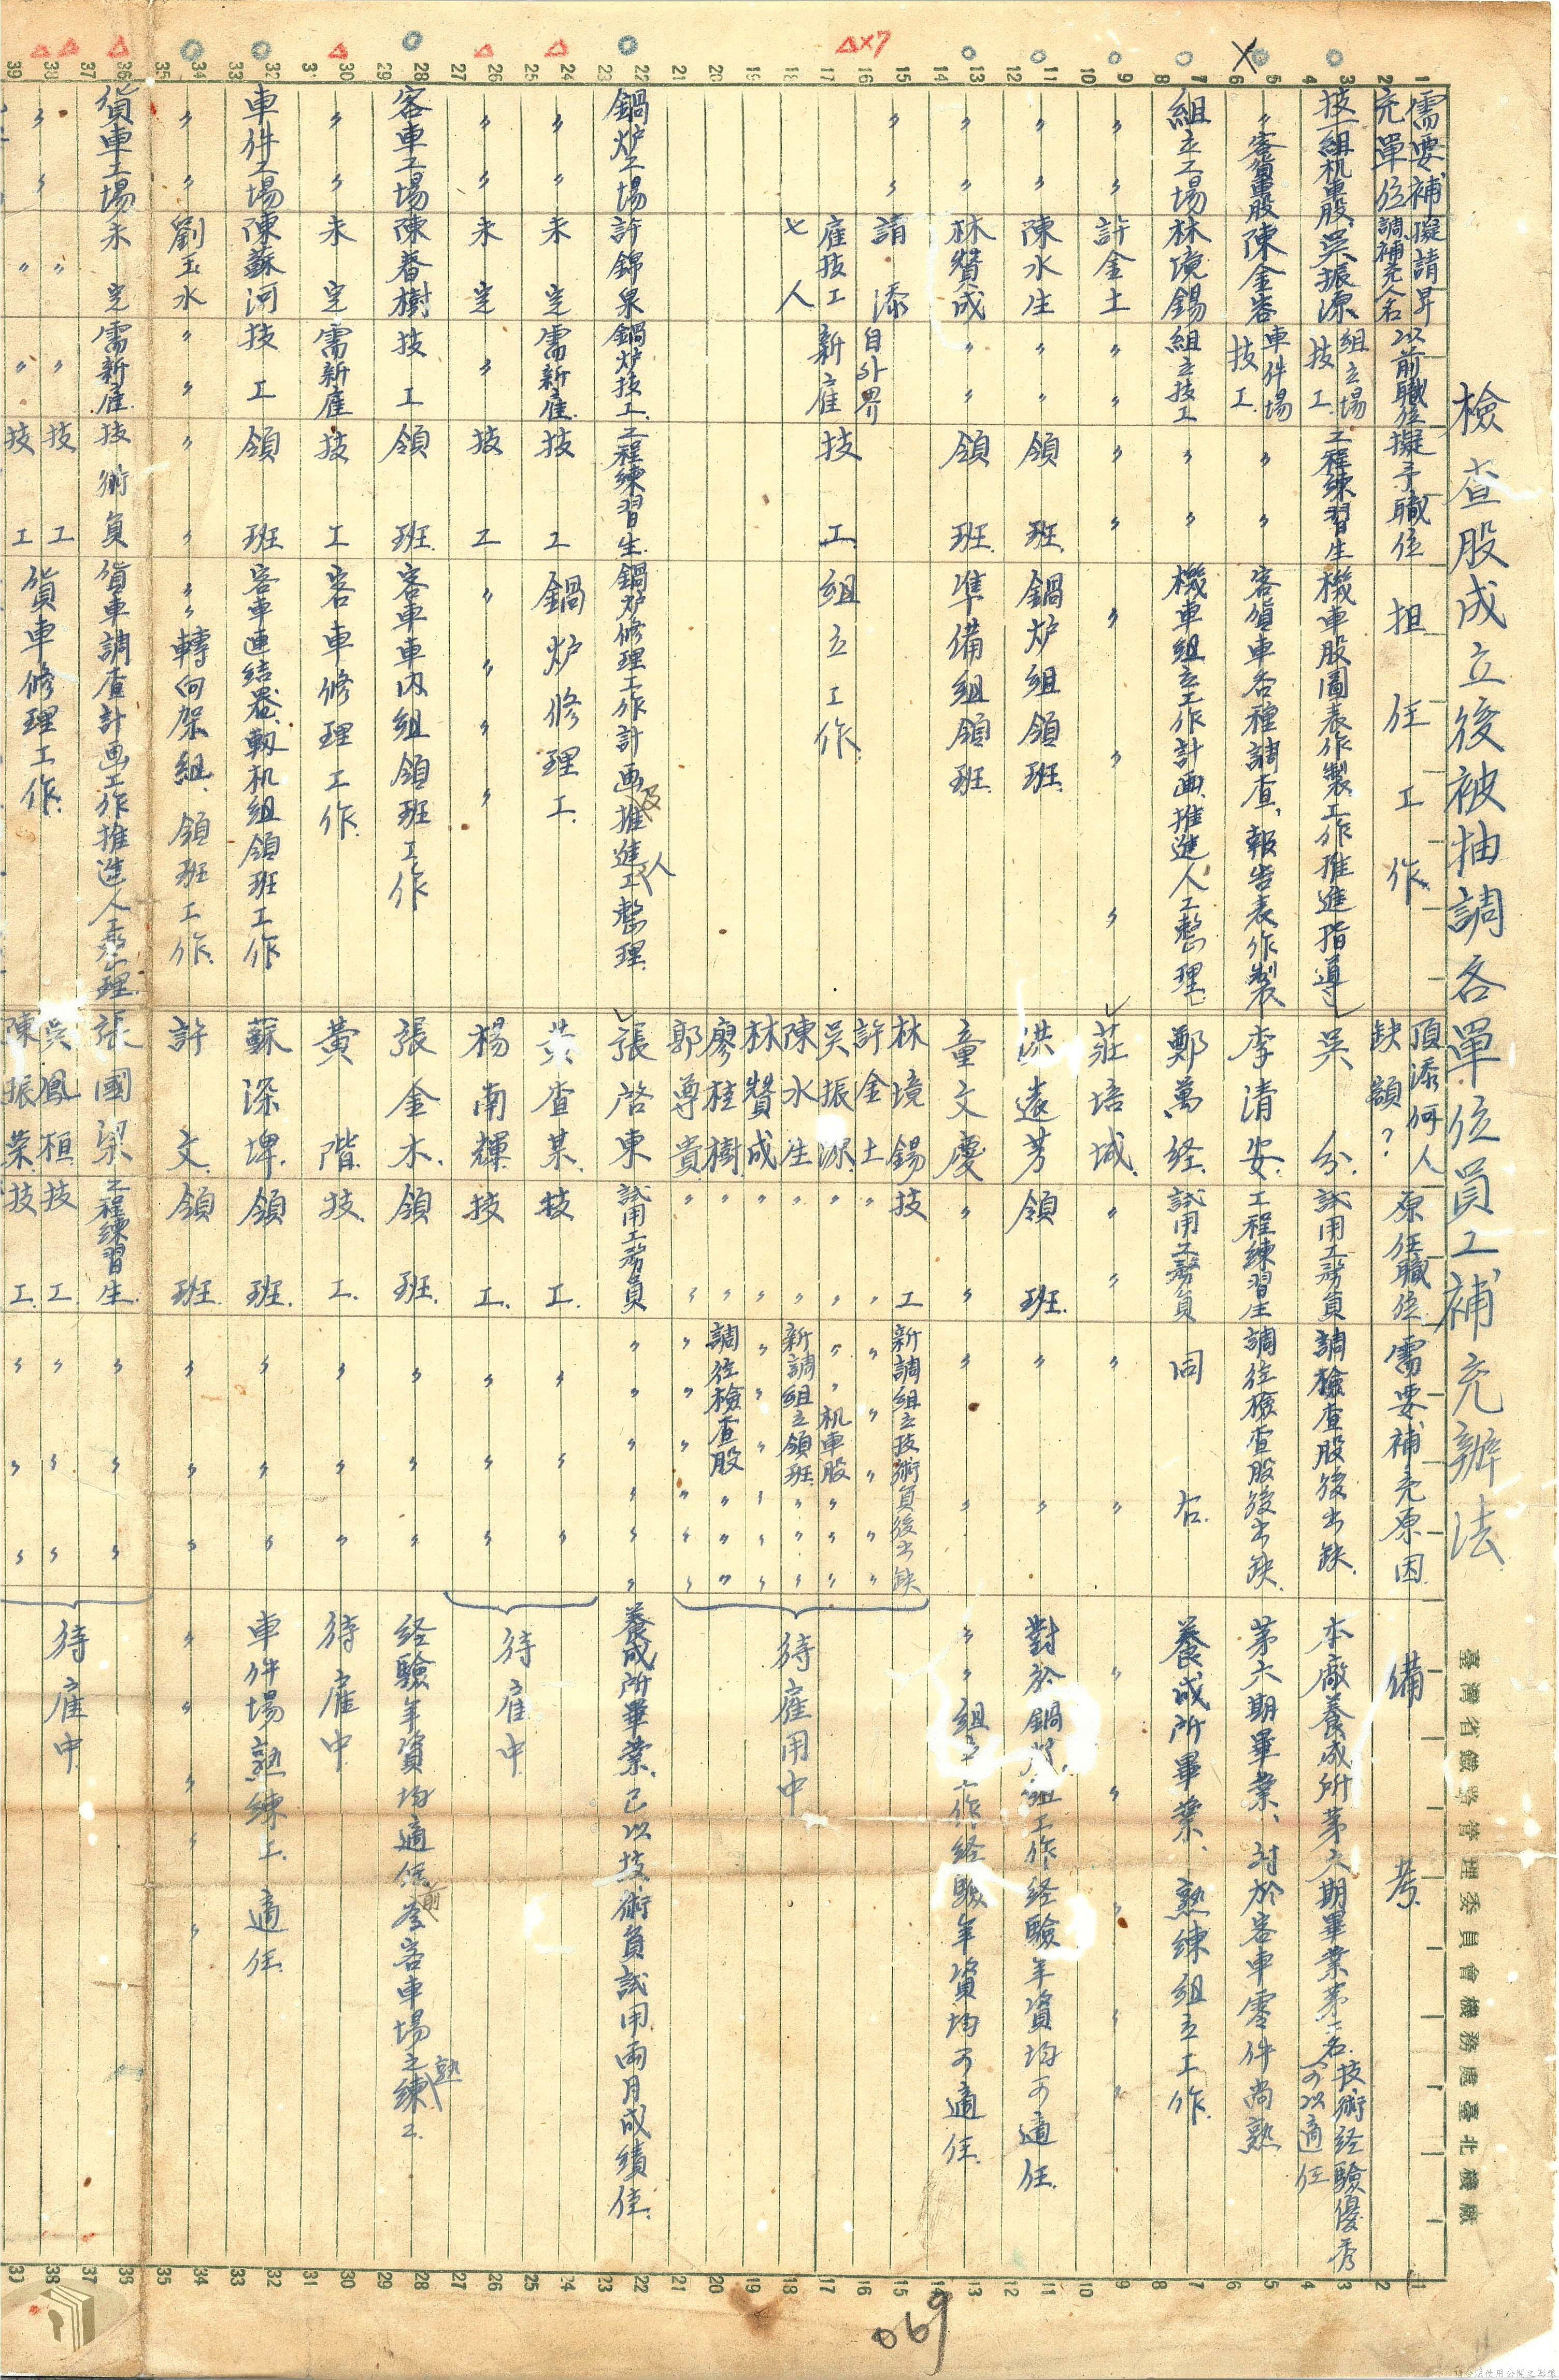 檢查股成立後被抽調各單位員工補充辦法
臺灣省鐵路管理委員會機務處臺北機廠
需要補充單位 擬請昇調補充人名 以前職位 擬予職位 担任工作 頂添何人缺額? 原任職位 需要補充原因 備考
技一組机車股 吳振源 組立場技工 工程練習生 機車股圖表作製工作推進指導 吳 分 試用工務員 調檢查股後出缺 本廠養成所第六期畢業第一名 技術経驗優秀可以適任
〃 客貨車股 陳金峇 車件場技工 〃 客貨車各種調查、報告表作製 李清安 工程練習生 調往檢查股後出缺 第六期畢業、對於客車零件尚熟
組立工場 林境錫 組立技工 〃 機車組立工作計画推進人工整理 鄭萬経 試用工務員 同右 養成所畢業、熟練組立工作
〃 〃 許金土 〃 〃 〃 〃 莊培城 〃 〃 〃 〃 〃 〃
〃 〃 陳水生 〃 領班 鍋炉組領班 洪遠芳 領班 〃 〃 對於鍋炉組工作経驗年資均可適任
〃 〃 林贊成 〃 領班 準備組領班 童文慶 〃 〃 〃 〃 〃 〃 組立工作経驗年資均可適任
〃 〃 請添雇技工七人 自外界新雇 技工 組立工作
林境錫 技工 新調組立技術員後出缺
許金土 〃 〃 〃 〃 〃 〃 〃
吳振源 〃 〃 〃 〃 机車股 〃 〃
陳水生 〃 〃 新調組立領班 〃 〃
林贊成 〃 〃 〃 〃 〃 〃 〃
廖桂樹 〃 〃 調往檢查股 〃 〃
郭尊貴 〃 〃 〃 〃 〃 〃 〃
待雇用中
鍋炉工場 許錦泉 鍋炉技工 工程練習生 鍋炉修理工作計画及推進人工整理 張啓東 試用工務員 〃 〃 〃 〃 養成所畢業、已以技術員試用兩月成績佳
〃 〃 未定 需新雇 技工 鍋炉修理工 黃查某 技工 〃 〃 〃
〃 〃 未定 〃 技工 〃 〃 〃 〃 楊南輝 技工 〃 〃 〃
待雇中
客車工場 陳番樹 技工 領班 客車車內組領班工作 張金木 領班 〃 〃 〃 経驗年資均適任前客車場之熟練工
〃 〃 未定 需新雇 技工 客車修理工作 黃階 技工 〃 〃 〃 待雇中
車件工場 陳蘇河 技工 領班 客車連结器、軔机組領班工作 蘇深埤 領班 〃 〃 〃 車件場熟練工 適任
〃 〃 劉玉水 〃 〃 〃 〃 〃 〃 轉向架組領班工作 許文 領班 〃 〃 〃 〃 〃 〃 〃 〃
貨車工場 未定 需新雇 技術員 貨車調查計画工作推進人工整理 張國梁 工程練習生 〃 〃 〃
〃 〃 〃 〃 技工 貨車修理工作 吳鳳桓 技工 〃 〃 〃
〃 〃 〃 〃 技工 陳振榮 技工 〃 〃 〃
待雇中
△×7
069